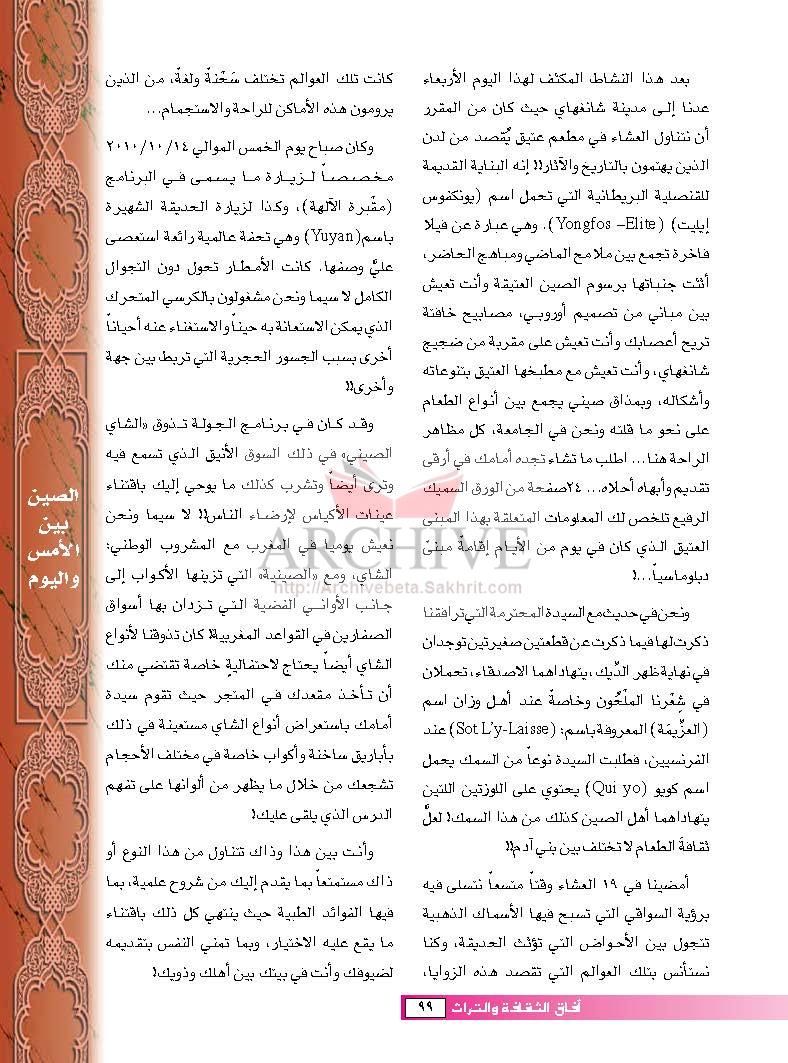 بعد هذا النشاط المكثف لهذا اليوم الأربعاء
عدنا إلى مدينة شانغهاي حيث كان من المقرر
أن نتناول العشاء في مطعم عتيق يُقصد من لدن
الذين يهتمون بالتاريخ والآثار!! إنه البناية القديمة
للقنصلية البريطانية التي تحمل اسم (يونكفوس
إيليت) (Yongfos –Elite). وهي عبارة عن فيلا
فاخرة تجمع بين ملامح الماضي ومباهج الحاضر،
أثثت جنباتها برسوم الصين العتيقة وأنت تعيش
بين مباني من تصميم أوروبي، مصابيح خافتة
تريح أعصابك وأنت تعيش على مقربة من ضجيج
شانغهاي، وأنت تعيش مع مطبخها العتيق بتنوعاته
وأشكاله، وبمذاق صيني يجمع بين أنواع الطعام
على نحو ما قلته ونحن في الجامعة، كل مظاهر
الراحة هنا... اطلب ما تشاء تجده أمامك في أرقى
تقديم وأبهاه أحلاه... ٢٤صفحة من الورق السميك
الرفيع تلخص لك المعلومات المتعلقة بهذا المبنى
العتيق الذي كان في يوم من الأيام إقامةً مبنىً
دبلوماسياً...!
ونحن في حديث مع السيدة المحترمة التي ترافقنا
ذكرت لها فيما ذكرت عن قطعتين صغيرتين توجدان
في نهاية ظهر الدِّيك، يتهاداهما الاصدقاء، تحملان
في شِعْرنا الملْحُون وخاصةً عند أهل وزان اسم
(العزِّيمَة) المعروفة باسم: (Sot L'y-Laisse) عند
الفرنسيين، فطلبت السيدة نوعاً من السمك يحمل
اسم كويو (Qui yo) يحتوي على اللوزتين اللتين
يتهاداهما أهل الصين كذلك من هذا السمك! لعلَّ
ثقافة الطعام لا تختلف بين بني آدم!!
أمضينا في ١٩ العشاء وقتاً متسعاً نتسلى فيه
برؤية السواقي التي تسبح فيها الأسماك الذهبية
تتجول بين الأحواض التي تؤثث الحديقة، وكنا
نستأنس بتلك العوالم التي تقصد هذه الزوايا،
كانت تلك العوالم تختلف سَحْنةً ولغةً، من الذين
يرومون هذه الأماكن للراحة والاستجمام...
وكان صباح يوم الخمس الموالي ٢٠١٠/١٠/١٤
مخصصاً لزيارة ما يسمى في البرنامج
(مقْبرة الآلهة)، وكذا لزيارة الحديقة الشهيرة
باسم(Yuyan) وهي تحفة عالمية رائعة استعصى
عليَّ وصفها. كانت الأمطار تحول دون التجوال
الكامل لا سيما ونحن مشغولون بالكرسي المتحرك
الذي يمكن الاستعانة به حيناً والاستغناء عنه أحياناً
أخرى بسبب الجسور الحجرية التي تربط بين جهة
وأخرى!!
وقد كان في برنامج الجولة تذوق «الشاي
الصيني» في ذلك السوق الأنيق الذي تسمع فيه
وترى أيضاً وتشرب كذلك ما يوحي إليك باقتناء
عينات الأكياس لإرضاء الناس!! لا سيما ونحن
نعيش يوميا في المغرب مع المشروب الوطني:
الشاي، ومع «الصينية» التي تزينها الأكواب إلى
جانب الأواني الفضية التي تزدان بها أسواق
الصفارين في القواعد المغربية! كان تذوقنا لأنواع
الشاي أيضاً يحتاج لاحتفالية خاصة تقتضي منك
أن تأخذ مقعدك في المتجر حيث تقوم سيدة
أمامك باستعراض أنواع الشاي مستعينة في ذلك
بأباريق ساخنة وأكواب خاصة في مختلف الأحجام
تشجعك من خلال ما يظهر من ألوانها على تفهم
الدرس الذي يلقى عليك!
وأنت بين هذا وذاك تتناول من هذا النوع أو
ذاك مستمتعاً بما يقدم إليك من شروح علمية، بما
فيها الفوائد الطبية حيث ينتهي كل ذلك باقتناء
ما يقع عليه الاختيار، وبما تمني النفس بتقديمه
لضيوفك وأنت في بيتك بين أهلك وذويك!
الصين
بين
الأمس
واليوم
ARCHIVE
http://Archivebeta.Sakhrit.com
آفاق الثقافة والتراث ٩٩